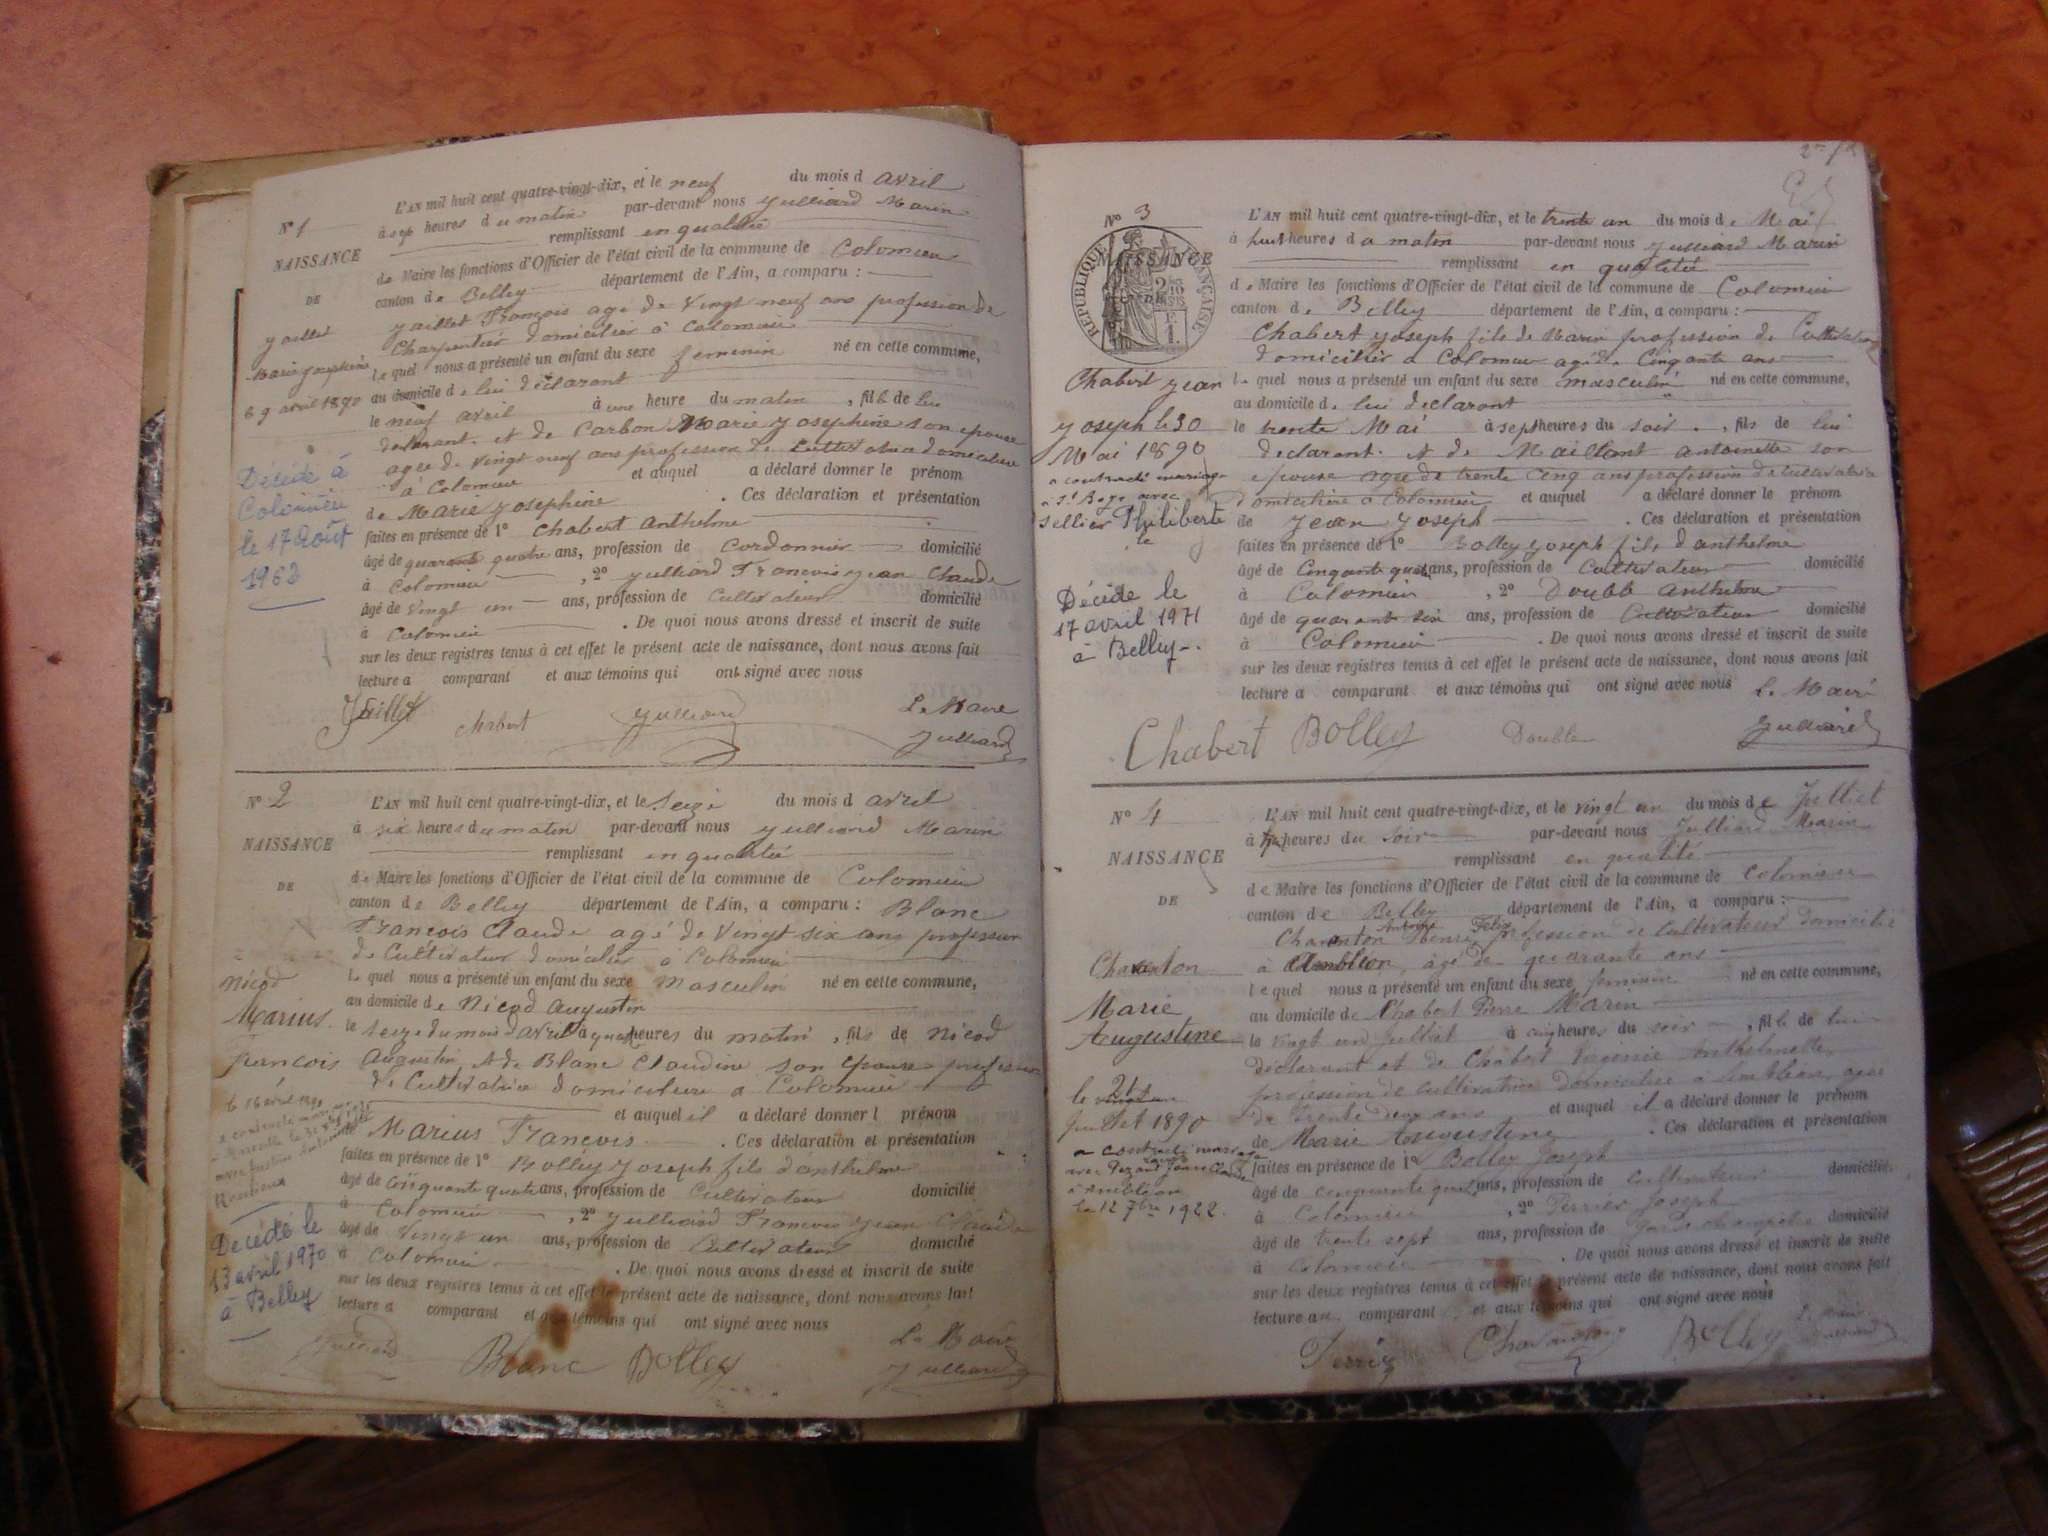 N° 1
NAISSANCE
DE
Jaillet
Marie Josephine
9 avril 1890
Décédé à
Colomieu
le 17 Août
1963
L'AN mil huit cent quatre-vingt-dix, et le neuf du mois d avril
à sept heures du matin par-devant nous Julliard Marin
remplissant en qualité
de Maire les fonctions d'Officier de l'état civil de la commune de Colomieu
canton de Belley département de l'Ain, a comparu :
Jaillet François agé de Vingt neuf ans profession de
Charpentier domicilier à Colomieu
le quel nous a présenté un enfant du sexe feminin né en cette commune,
au domicile de lui déclarant
le neuf avril à une heure du matin, fille de lui
declarant. et de Carbon Marie Josephine son epouse
agée de Vingt neuf ans profession de Cultivatrice domiciliée
à Colomieu et auquel a déclaré donner le prénom
de Marie Josephine. Ces déclaration et présentation
faites en présence de 1° Chabert Anthelme
âgé de quarante quatre ans, profession de Cordonnier domicilié
à Colomieu, 2° Julliard François Jean Claude
âgé de Vingt un ans, profession de Cultivateur domicilié
à Colomieu. De quoi nous avons dressé et inscrit de suite
sur les deux registres tenus à cet effet le présent acte de naissance, dont nous avons fait
lecture a comparant et aux témoins qui ont signé avec nous
Jaillet Chabert Julliard Le Maire
Julliard
N° 2
NAISSANCE
DE
Nicod
Marius
François
le 16 avril 1890
a contracté mariage
Décédé le
13 avril 1970
à Belley
L'AN mil huit cent quatre-vingt-dix, et le seize du mois d avril
à six heures du matin par-devant nous Julliard Marin
remplissant en qualité
de Maire les fonctions d'Officier de l'état civil de la commune de Colomieu
canton de Belley département de l'Ain, a comparu : Blanc
François Claude agé de Vingt six ans profession
de Cultivateur domicilier à Colomieu
le quel nous a présenté un enfant du sexe masculin né en cette commune,
au domicile de Nicod Augustin
le seize du mois d'avril à quatre heures du matin, fils de Nicod
Augustin et de Blanc Claudine son epouse profession
de Cultivatrice domiciliere a Colomieu
et auquel il a déclaré donner l prénom
Marius François. Ces déclaration et présentation
faites en présence de 1° Bolley Joseph fils d'anthelme
âgé de Cinquante quatre ans, profession de Cultivateur domicilié
à Colomieu, 2° Julliard François Jean Claude
âgé de Vingt un ans, profession de Cultivateur domicilié
à Colomieu. De quoi nous avons dressé et inscrit de suite
sur les deux registres tenus à cet effet le présent acte de naissance, dont nous avons fait
lecture a comparant et aux témoins qui ont signé avec nous
Julliard Blanc Bolley Le Maire
Julliard
N° 3
NAISSANCE
RÉPUBLIQUE FRANÇAISE
Chabert Jean
Joseph le 30
Mai 1890
a contracté mariage
à St Bogo avec
Sellier Philiberte
le
Décédé le
17 avril 1971
à Belley
L'AN mil huit cent quatre-vingt-dix, et le trente un du mois de Mai
à huit heures d a matin par-devant nous Julliard Marin
remplissant en qualité
de Maire les fonctions d'Officier de l'état civil de la commune de Colomieu
canton de Belley département de l'Ain, a comparu :
Chabert Joseph fils de Marin profession de Cultivateur
domicilier a Colomieu agé de Cinquante ans
le quel nous a présenté un enfant du sexe masculin né en cette commune,
au domicile de lui declarant
le trente Mai à sept heures du soir, fils de lui
declarant. et de Maillant Antoinette son
epouse agée de trente cinq ans profession de Cultivatrice
domicilière a Colomieu et auquel a déclaré donner le prénom
de Jean Joseph. Ces déclaration et présentation
faites en présence de 1° Bolley Joseph fils d'anthelme
âgé de Cinquante quatre ans, profession de Cultivateur domicilié
à Colomieu, 2° Double Anthelme
âgé de quarante six ans, profession de Cultivateur domicilié
à Colomieu. De quoi nous avons dressé et inscrit de suite
sur les deux registres tenus à cet effet le présent acte de naissance, dont nous avons fait
lecture a comparant et aux témoins qui ont signé avec nous Le Maire
Chabert Bolley Double Julliard
N° 4
NAISSANCE
DE
Charenton
Marie
Augustine
le vingt un
Juillet 1890
a contracté mariage
avec Pezant Jean Claude
à Ambléon
le 12 7bre 1922.
L'AN mil huit cent quatre-vingt-dix, et le vingt un du mois de Juillet
à heures du soir par-devant nous Julliard Marin
remplissant en qualité
de Maire les fonctions d'Officier de l'état civil de la commune de Colomieu
canton de Belley département de l'Ain, a comparu :
Charenton Antoine Henri Félix profession de cultivateur domicilié
à Ambléon, âgé de quarante ans
le quel nous a présenté un enfant du sexe feminin né en cette commune,
au domicile de Chabert Pierre Marin
le vingt un Juillet à cinq heures du soir, fille de lui
déclarant et de Chabert Virginie Anthelmette
profession de cultivatrice domicilière à Ambléon, agée
de trente deux ans et auquel il a déclaré donner le prénom
de Marie Augustine. Ces déclaration et présentation
faites en présence de 1° Bolley Joseph
âgé de cinquante quatre ans, profession de cultivateur domicilié
à Colomieu, 2° Perrier Joseph
âgé de trente sept ans, profession de garde champêtre domicilié
à Colomieu. De quoi nous avons dressé et inscrit de suite
sur les deux registres tenus à cet effet le présent acte de naissance, dont nous avons fait
lecture au comparant et aux témoins qui ont signé avec nous
Perrier Charenton Bolley Le Maire
Julliard